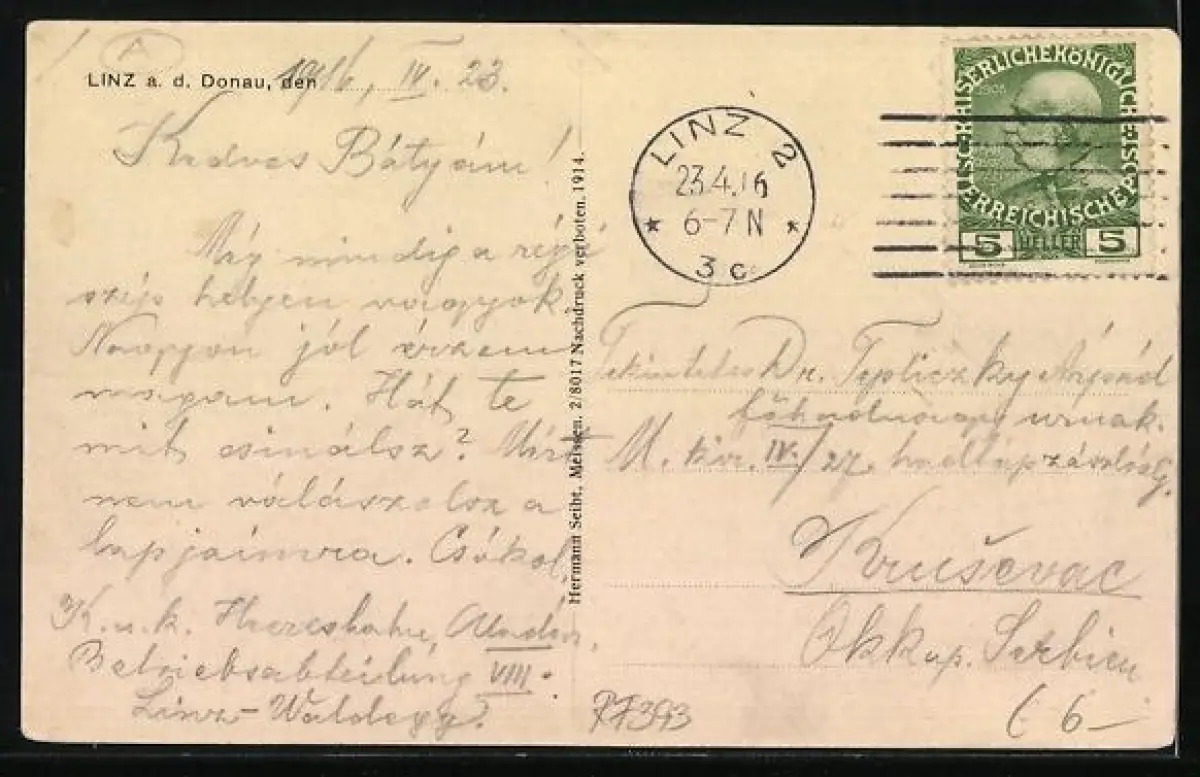 LINZ a. d. Donau, den 1916, IV. 23.
Kedves Bátyám!
Még mindig a régi
szép helyen vagyok.
Nagyon jól érzem
magam. Hát te
mit csinálsz? Miért
nem válaszolsz a
lapjaimra. Csókol
Aladár,
K. u. k. Heeresbahn,
Betriebsabteilung VIII.
Linz-Waldegg.
Hermann Seibt, Meissen, 2/8017 Nachdruck verboten, 1914.
LINZ 2
23.4.16
6-7 N
* *
3c
KAISERLICHE KÖNIGLICHE
ÖSTERREICHISCHE POST
1908
5 HELLER 5
Tekintetes Dr. Tepliczky Árpád
főhadnagy urnak.
M. kir. IV./27.
Kruševac
Okkup. Serbien
PF393
(6-
A